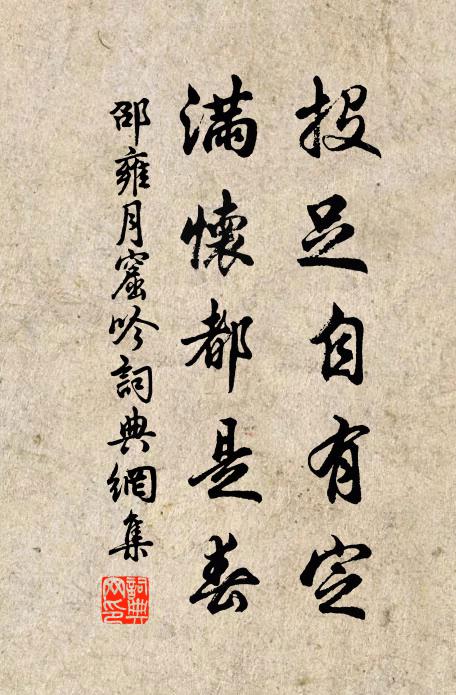 投足自有定
滿懷都是春
邵雍月窟吟詞典網集
詞典
網印